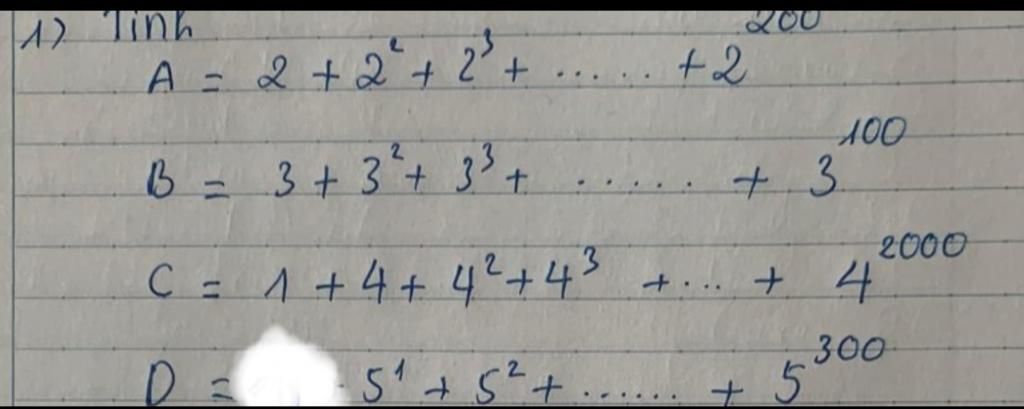 1) Tính
A = 2 + 2² + 2³ + ...... + 2²⁰⁰
B = 3 + 3² + 3³ + ...... + 3¹⁰⁰
C = 1 + 4 + 4² + 4³ + ... + 4²⁰⁰⁰
D = 5¹ + 5² + ...... + 5³⁰⁰